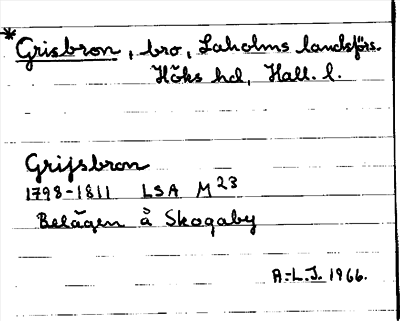 *Grisbron, bro, Laholms landsförs.
Höks hd, Hall. l.
Grijsbron
1798-1811 LSA M23
Belägen å Skogaby
A.-L.J. 1966.